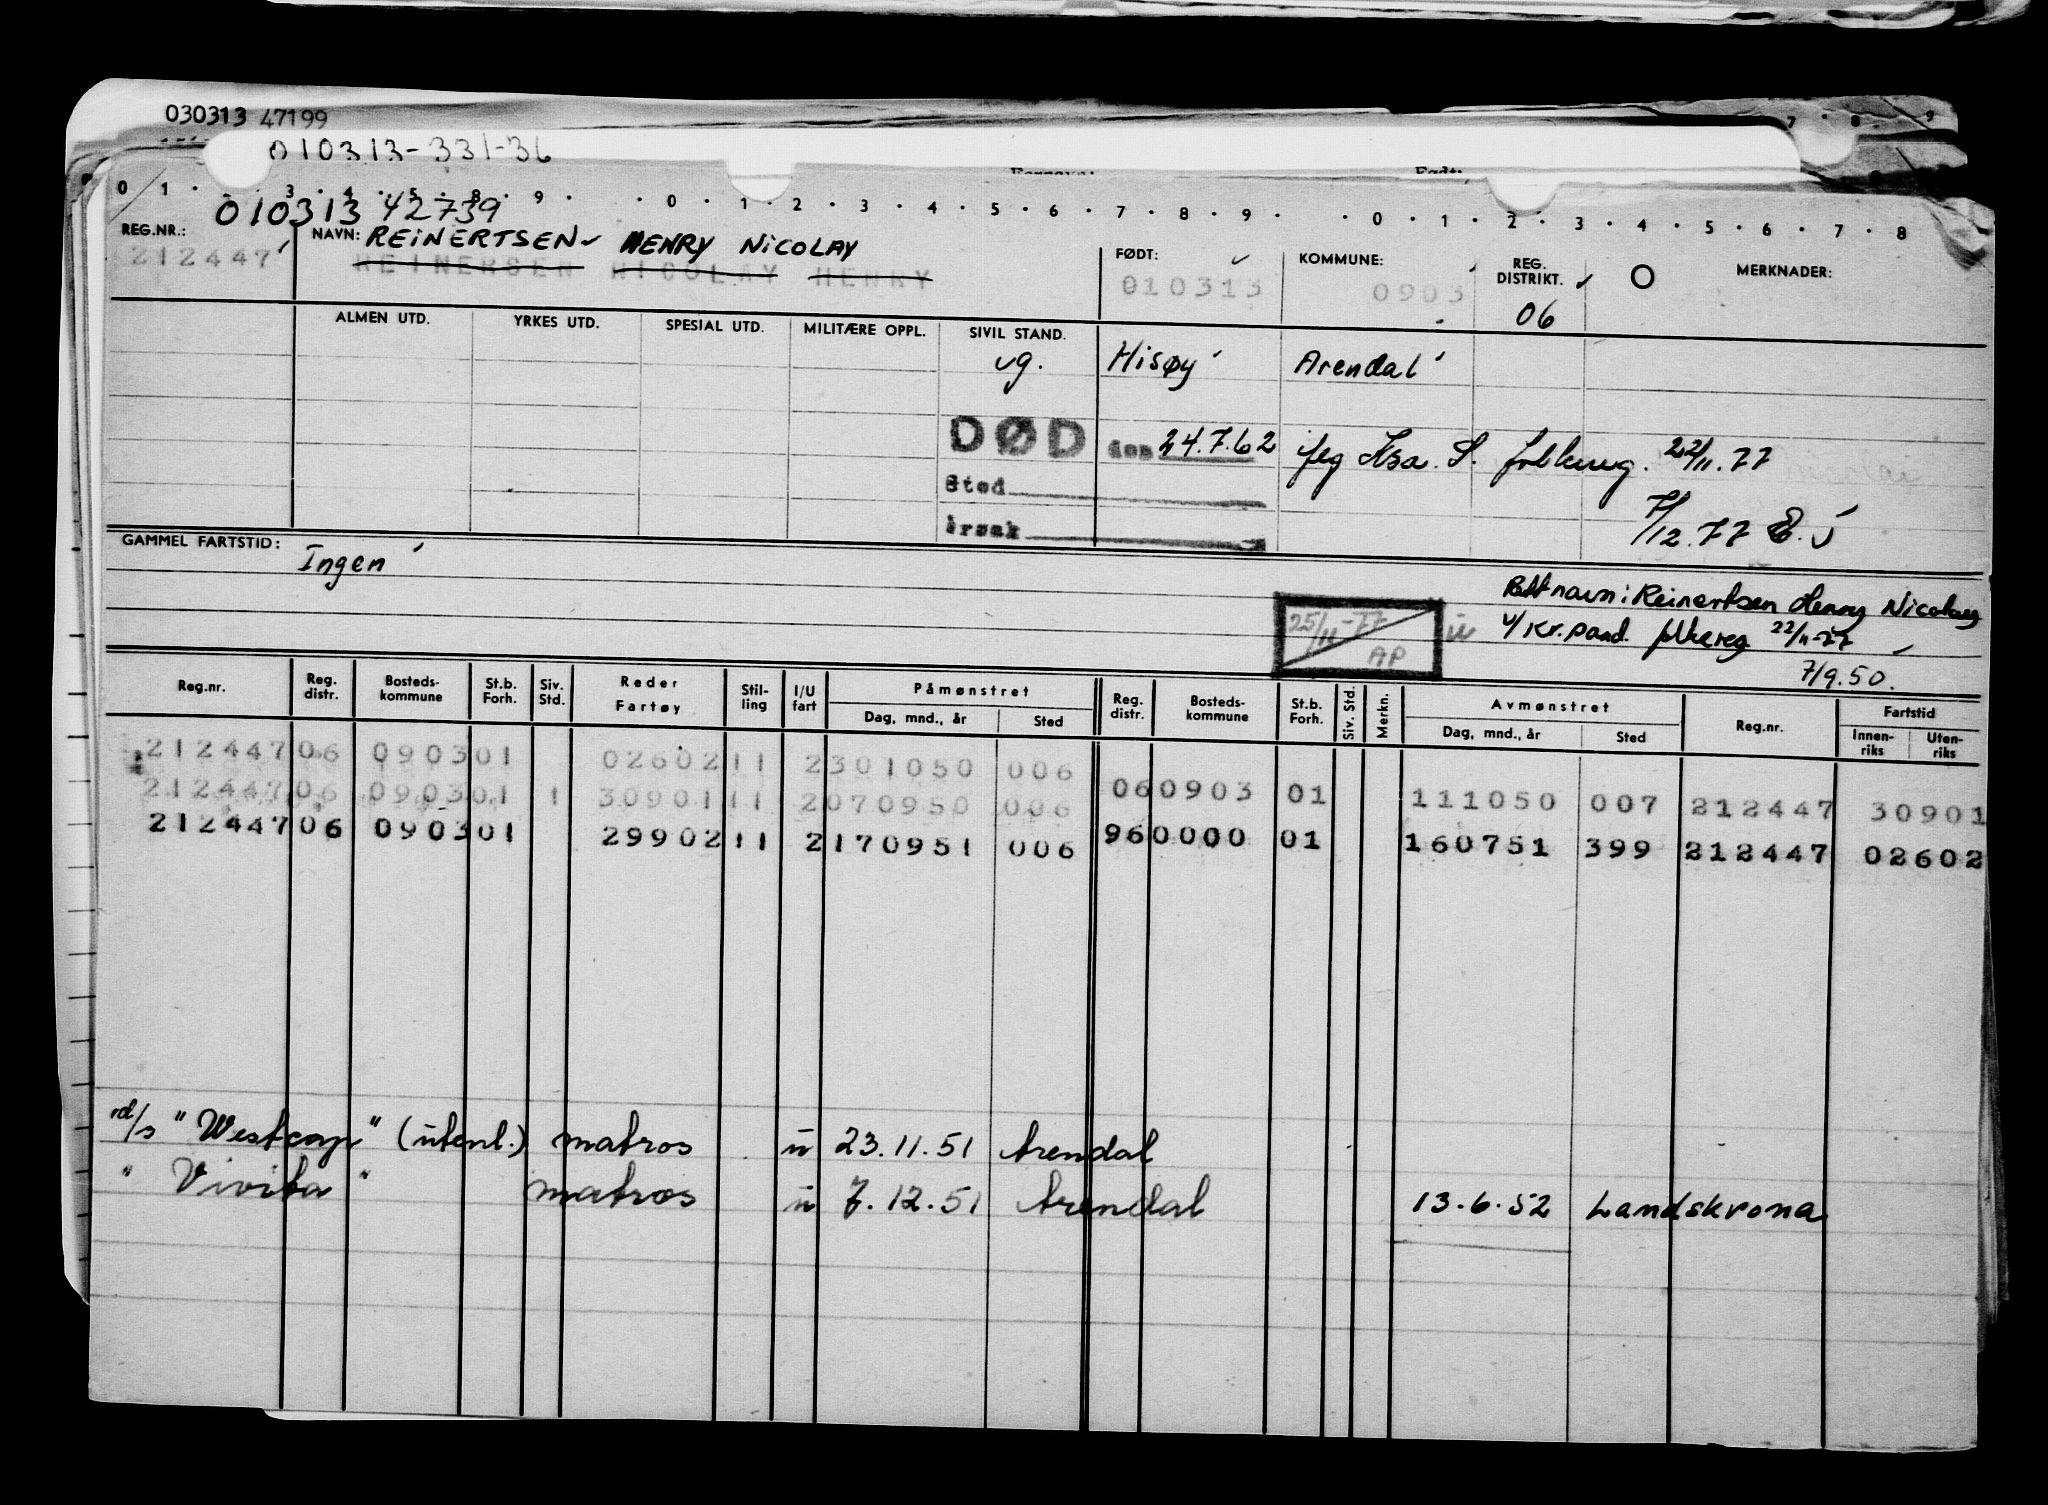 030313 47199
010313-331-36
0 1 · 3 · 4 · 5 · 8 · 9 · · 0 · 1 · 2 · 3 · 4 · 5 · 6 · 7 · 8 · 9 · · 0 · 1 · 2 · 3 · 4 · 5 · 6 · 7 · 8
010313 42739
REG.NR.: NAVN: REINERTSEN HENRY NICOLAY FØDT: KOMMUNE: REG. DISTRIKT. O MERKNADER:
212447 REINERSEN NICOLAY HENRY 010313 0903 06
ALMEN UTD. YRKES UTD. SPESIAL UTD. MILITÆRE OPPL. SIVIL STAND.
ug. Hisøy Arendal
DØD den 24.7.62 flg Krsa. S. folkereg. 22/11.77
Sted
7/12.77 E.J
årsak
GAMMEL FARTSTID: Ingen
Rett navn: Reinertsen Henry Nicolay
25/11-77 AP ü
v/Kr.sand. folkereg 22/11-77
7/9.50.
Reg.nr. Reg. distr. Bosteds-kommune St.b. Forh. Siv. Std. Reder Fartøy Stil-ling I/U fart Påmønstret Reg. distr. Bosteds-kommune St.b. Forh. Siv. Std. Merkn. Avmønstret Reg.nr. Fartstid
Dag, mnd., år Sted Dag, mnd., år Sted Innen-riks Uten-riks
212447 06 0903 01 02602 11 2 301050 006
212447 06 0903 01 1 30901 11 2 070950 006 06 0903 01 111050 007 212447 30901
212447 06 0903 01 29902 11 2 170951 006 96 0000 01 160751 399 212447 02602
m/s "Westcap" (utenl.) matros ü 23.11.51 Arendal
" Vivita " matros ü 7.12.51 Arendal 13.6.52 Landskrona